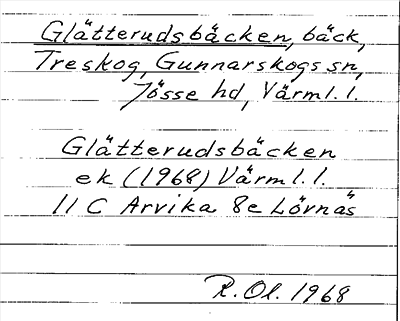 Glätterudsbäcken, bäck,
Treskog, Gunnarskogs sn,
Jösse hd, Värml. l.
Glätterudsbäcken
ek (1968) Värml. l.
11 C Arvika 8e Lövnäs
R. Ol. 1968